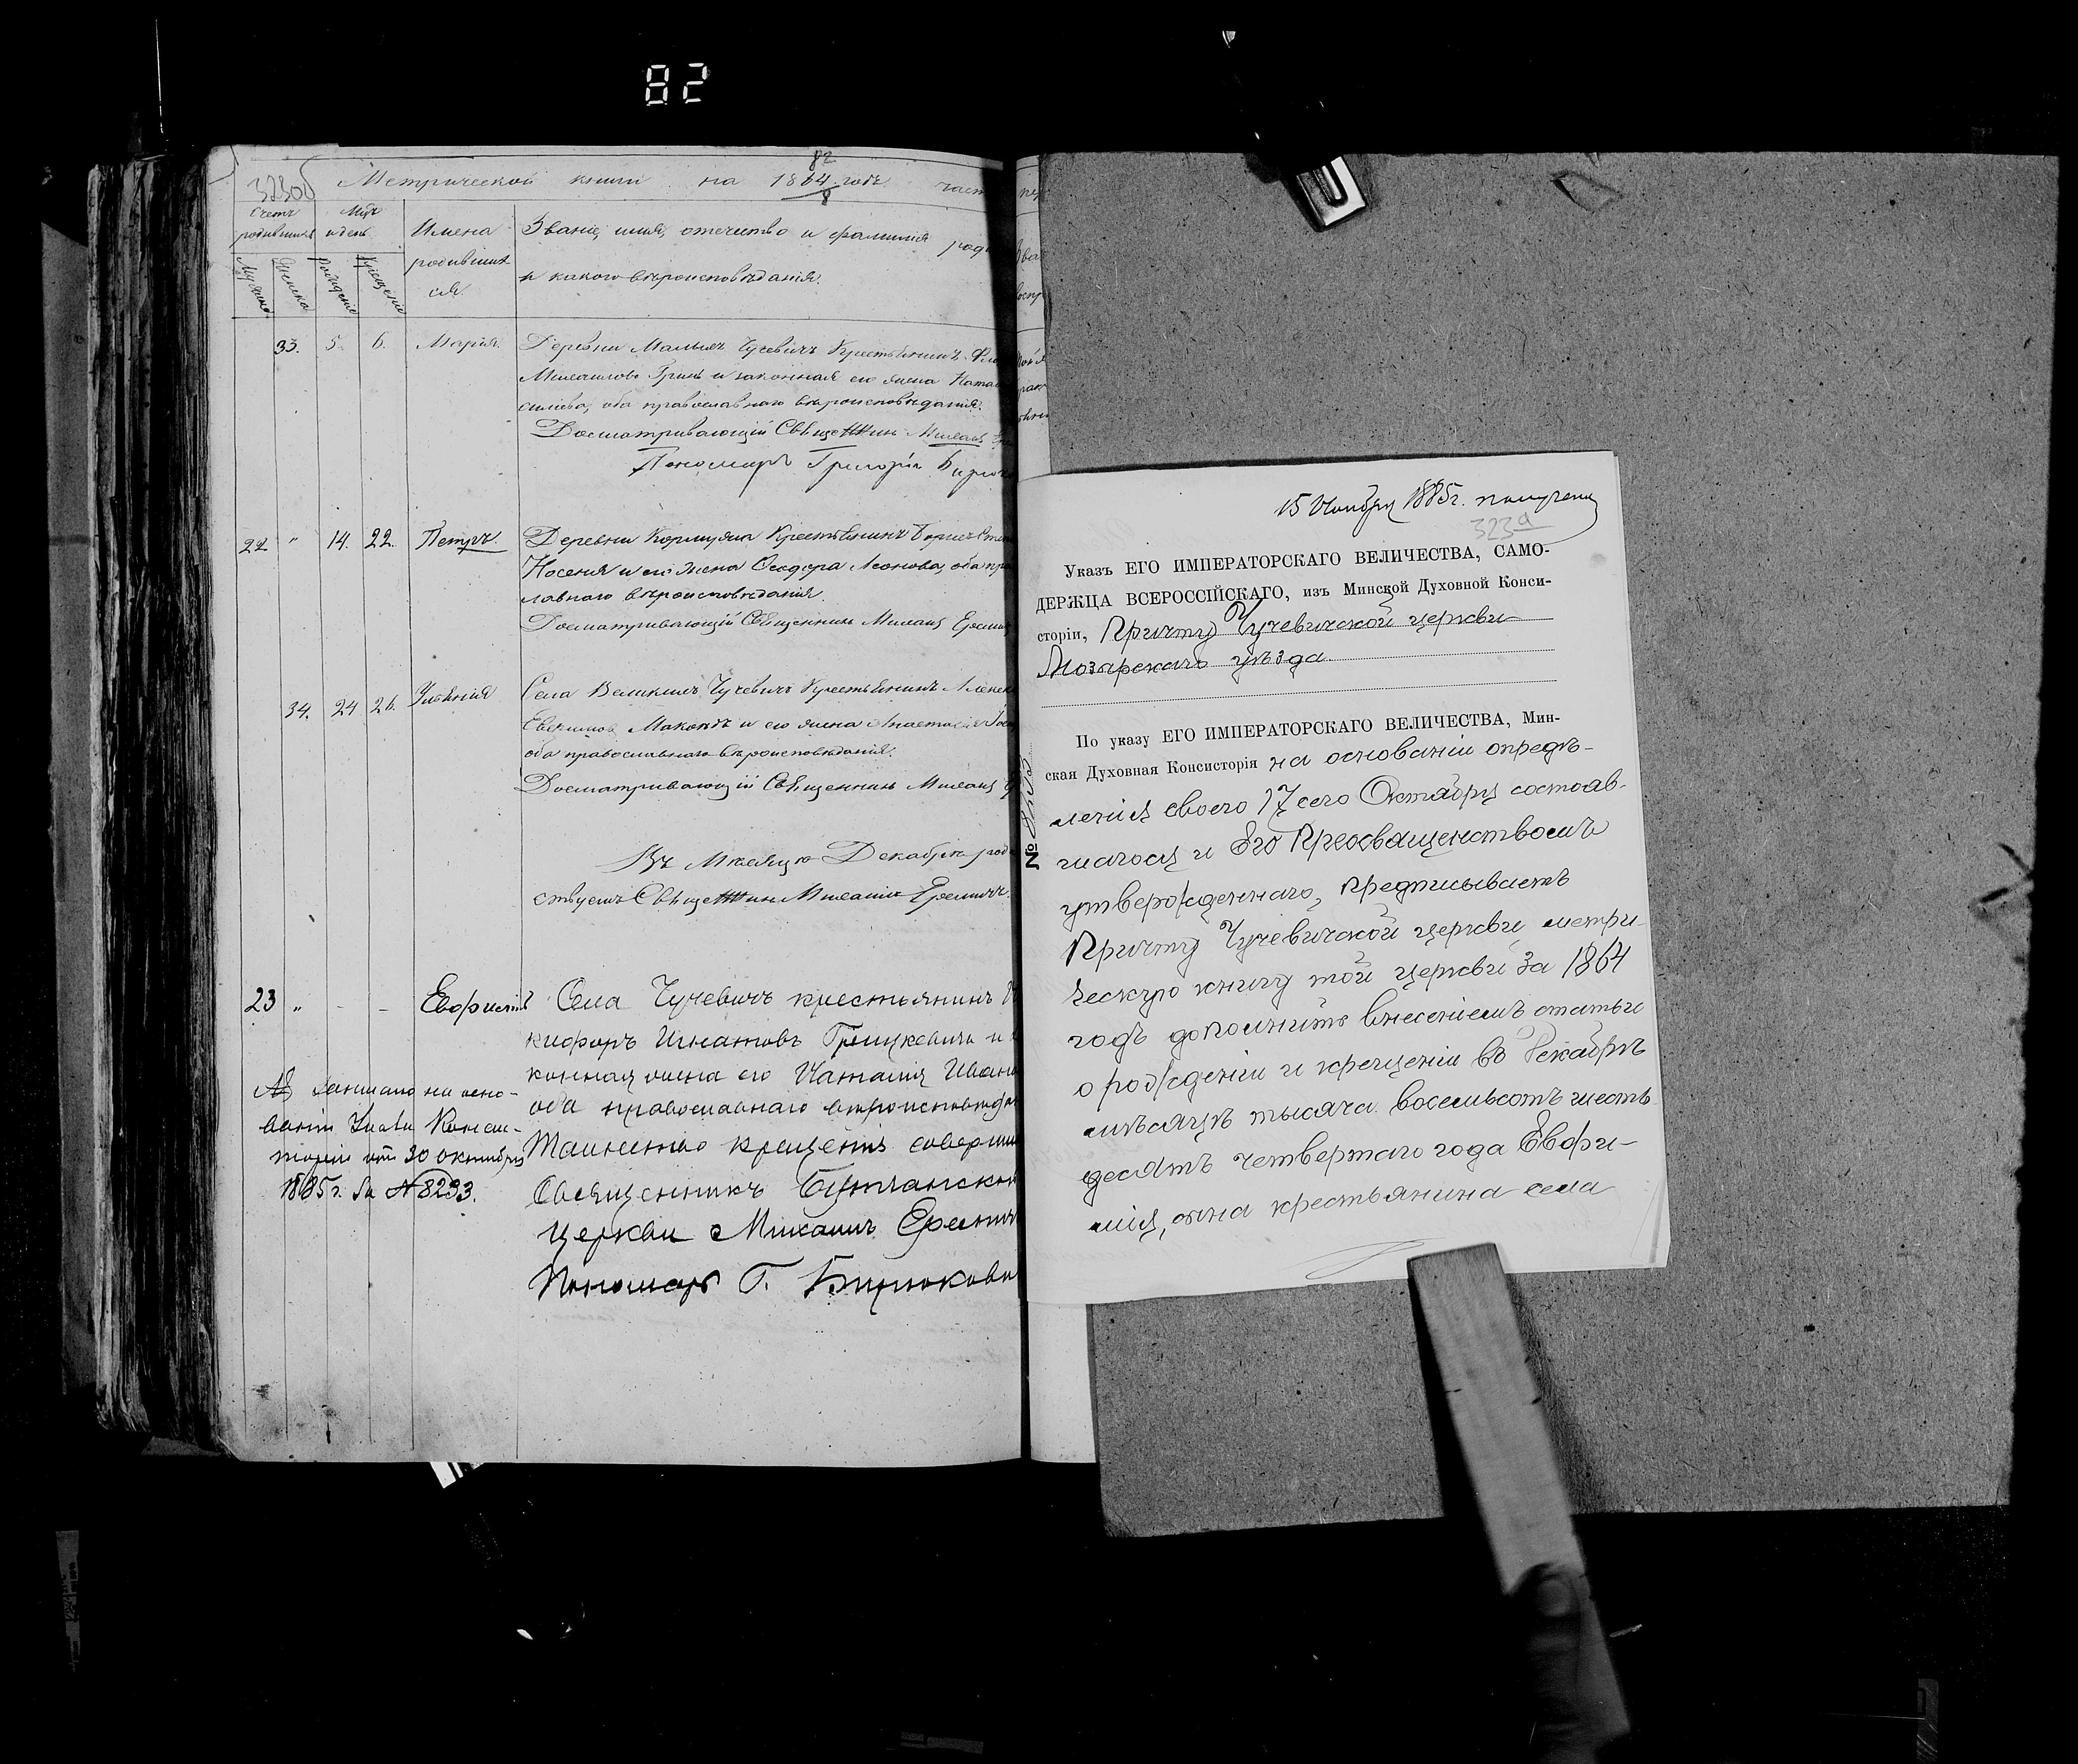 82
82
323об Метрической книги на 1864 годъ част
8
Счетъ родившихся
Мѣс. и день
Имена родившихся.
Званіе, имя, отечество и фамилія род
и какого вѣроисповѣданія.
Мужеска
Женска
Рожденія
Крещенія
33. 5. 6. Марія. Деревни Малыхъ Чучевичъ Крестьянинъ
Гринь и законная его жена Ната
сильева, оба православнаго вѣроисповѣданія.
Священник Михаил
Пономаръ Григорій Бирюко
22 " 14. 22. Петръ. Деревни Крестьянинъ Борисъ
Носеня и его жена Ѳеодора Леонова, оба пра
лавнаго вѣроисповѣданія.
Священникъ Михаилъ Ереми
34. 24 26. Уліянія Села Великихъ Чучевичъ Крестьянинъ Алекс
Евхимовъ и его жена Анастасія
оба православнаго вѣроисповѣданія.
Священникъ Михаилъ
Въ Мѣсяцѣ Декабрѣ
ствуемъ Священник Михаилъ Еремичъ.
23 " - - Евфимій Села Чучевичъ крестьянинъ Н
кифоръ Игнатовъ Грицкевичъ и
конная жена его Наталія Иван
оба православнаго вѣроисповѣдан
Таинство крещенія соверши
Священникъ
церкви Михаилъ Еремич
Пономаръ Г. Бирюкови
Записано на осно-
ваніи Указа Консис-
торіи отъ 30 октября
1885 г. за № 8293.
15 Ноября 1885 г. получени
323а
Указъ ЕГО ИМПЕРАТОРСКАГО ВЕЛИЧЕСТВА, САМО-
ДЕРЖЦА ВСЕРОССІЙСКАГО, изъ Минской Духовной Конси-
сторіи, Причту Чучевичской церкви
Мозырскаго уѣзда
По указу ЕГО ИМПЕРАТОРСКАГО ВЕЛИЧЕСТВА, Мин-
ская Духовная Консисторія на основаніи опредѣ-
ленія своего 17 сего Октября состояв-
шагося и Его Преосвященствомъ
утвержденнаго, предписываетъ
Причту Чучевичской церкви метри-
ческую книгу той церкви за 1864
годъ дополнить внесеніемъ статьи
о рожденіи и крещеніи въ Декабрѣ
мѣсяцѣ тысяча восемьсотъ шесть-
десятъ четвертаго года Евфи-
мія, сына крестьянина села
№